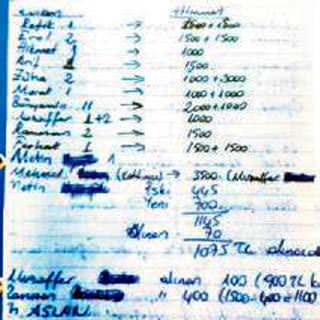 Refik 1 → 2500 + 1500
Erol 2 → 1500 + 1500
Hikmet → 1000
Arif 2 → 1500
Züha 2 → 1000 + 3000
Murat 1 → 1000 + 1000
Bünyamin 11 → 2000 + 1000
Muzaffer 1+2 → 1000
Ramazan 2 → 1500
Ferhat 1 → 1500 + 1500
Metin 1
Mehmed → 3500 (Muzaffer
Metin Eski 445
Yeni 700
1145
Alınan 70
1075 TL alınacak
Muzaffer alınan 100 (900 TL
Ramazan " 400 (1500-400=1100
ASLAN